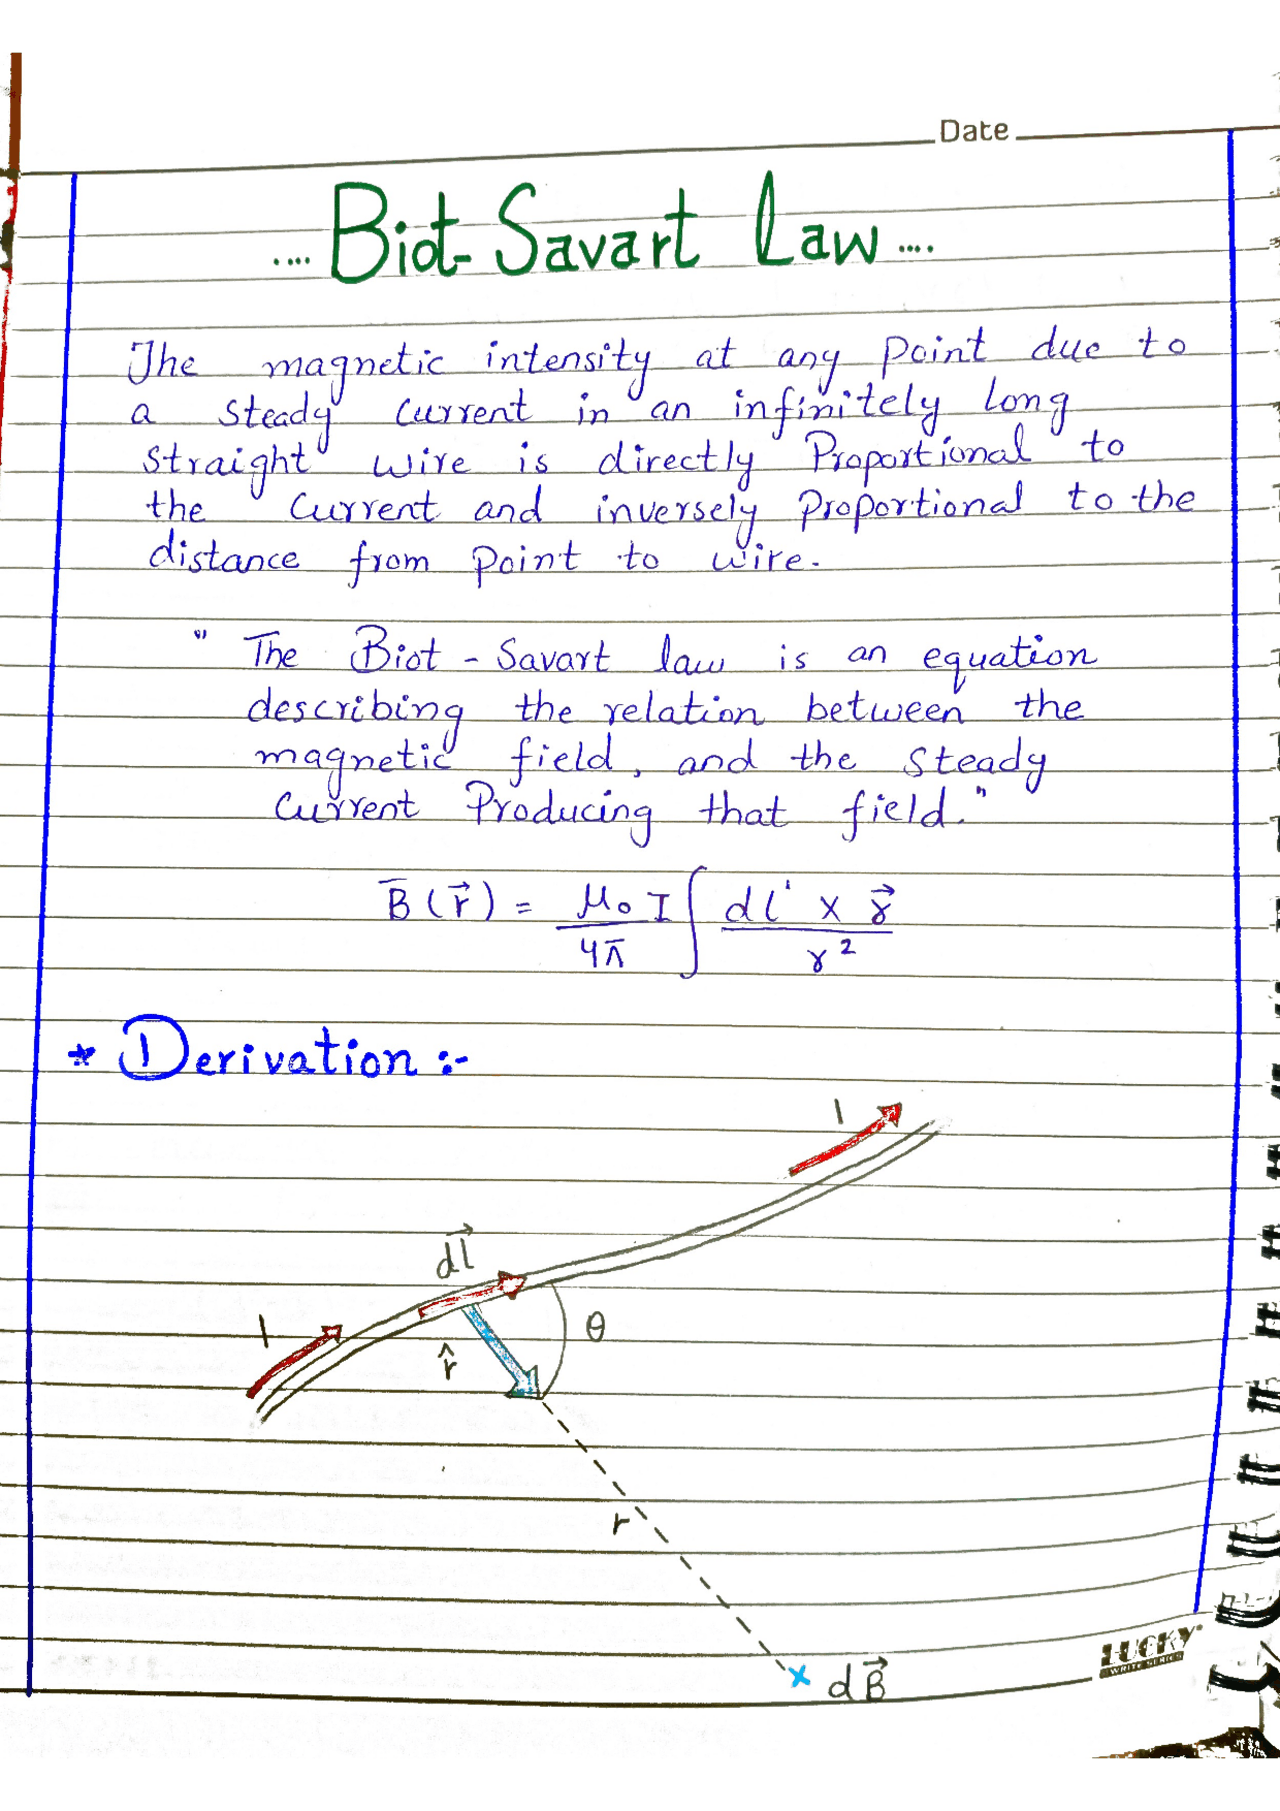 Date
.... Biot-Savart Law ....
The magnetic intensity at any Point due to
a steady current in an infinitely long
straight wire is directly Proportional to
the current and inversely Proportional to the
distance from Point to wire.
" The Biot - Savart law is an equation
describing the relation between the
magnetic field, and the steady
current Producing that field."
B̅ (r⃗) = μ₀ I / 4π ∫ dl' × r⃗ / r²
* Derivation :-
I
dl⃗
I
θ
r̂
r
dB⃗
LUCKY
WRITE SERIES